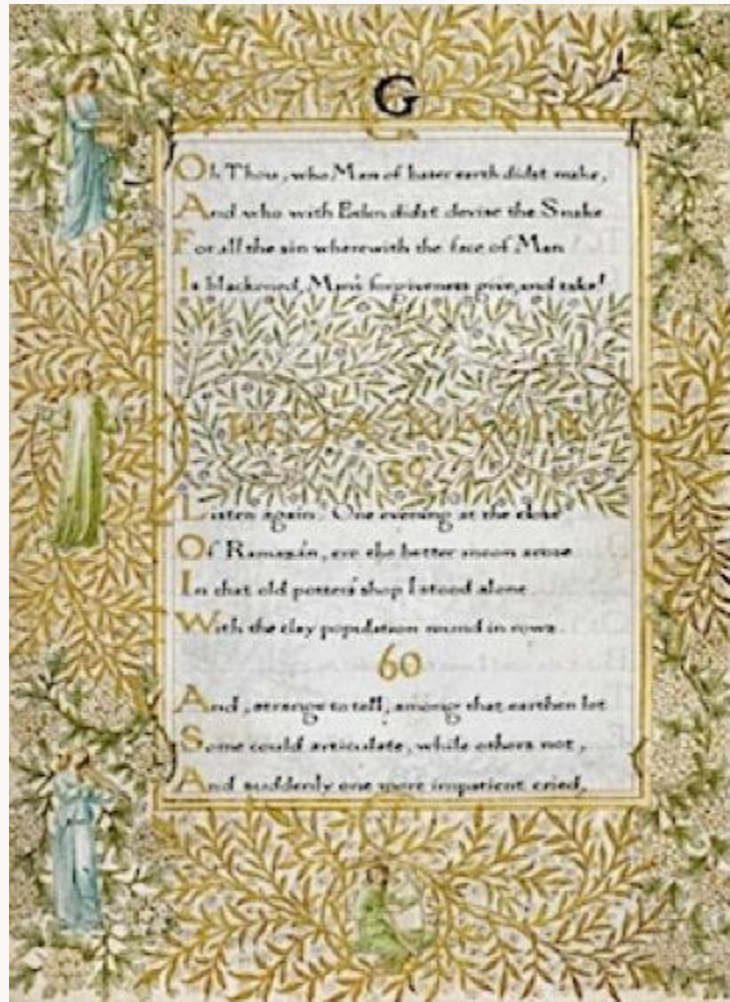 G
Oh Thou, who Man of baser earth didst make,
And who with Eden didst devise the Snake
For all the sin wherewith the face of Man
Is blackened, Man's forgiveness give, and take!
KUZA NAMA
59
Listen again. One evening at the close
Of Ramazán, ere the better moon arose
In that old potter's shop I stood alone
With the clay population round in rows.
60
And, strange to tell, among that earthen lot
Some could articulate, while others not,
And suddenly one more impatient cried,